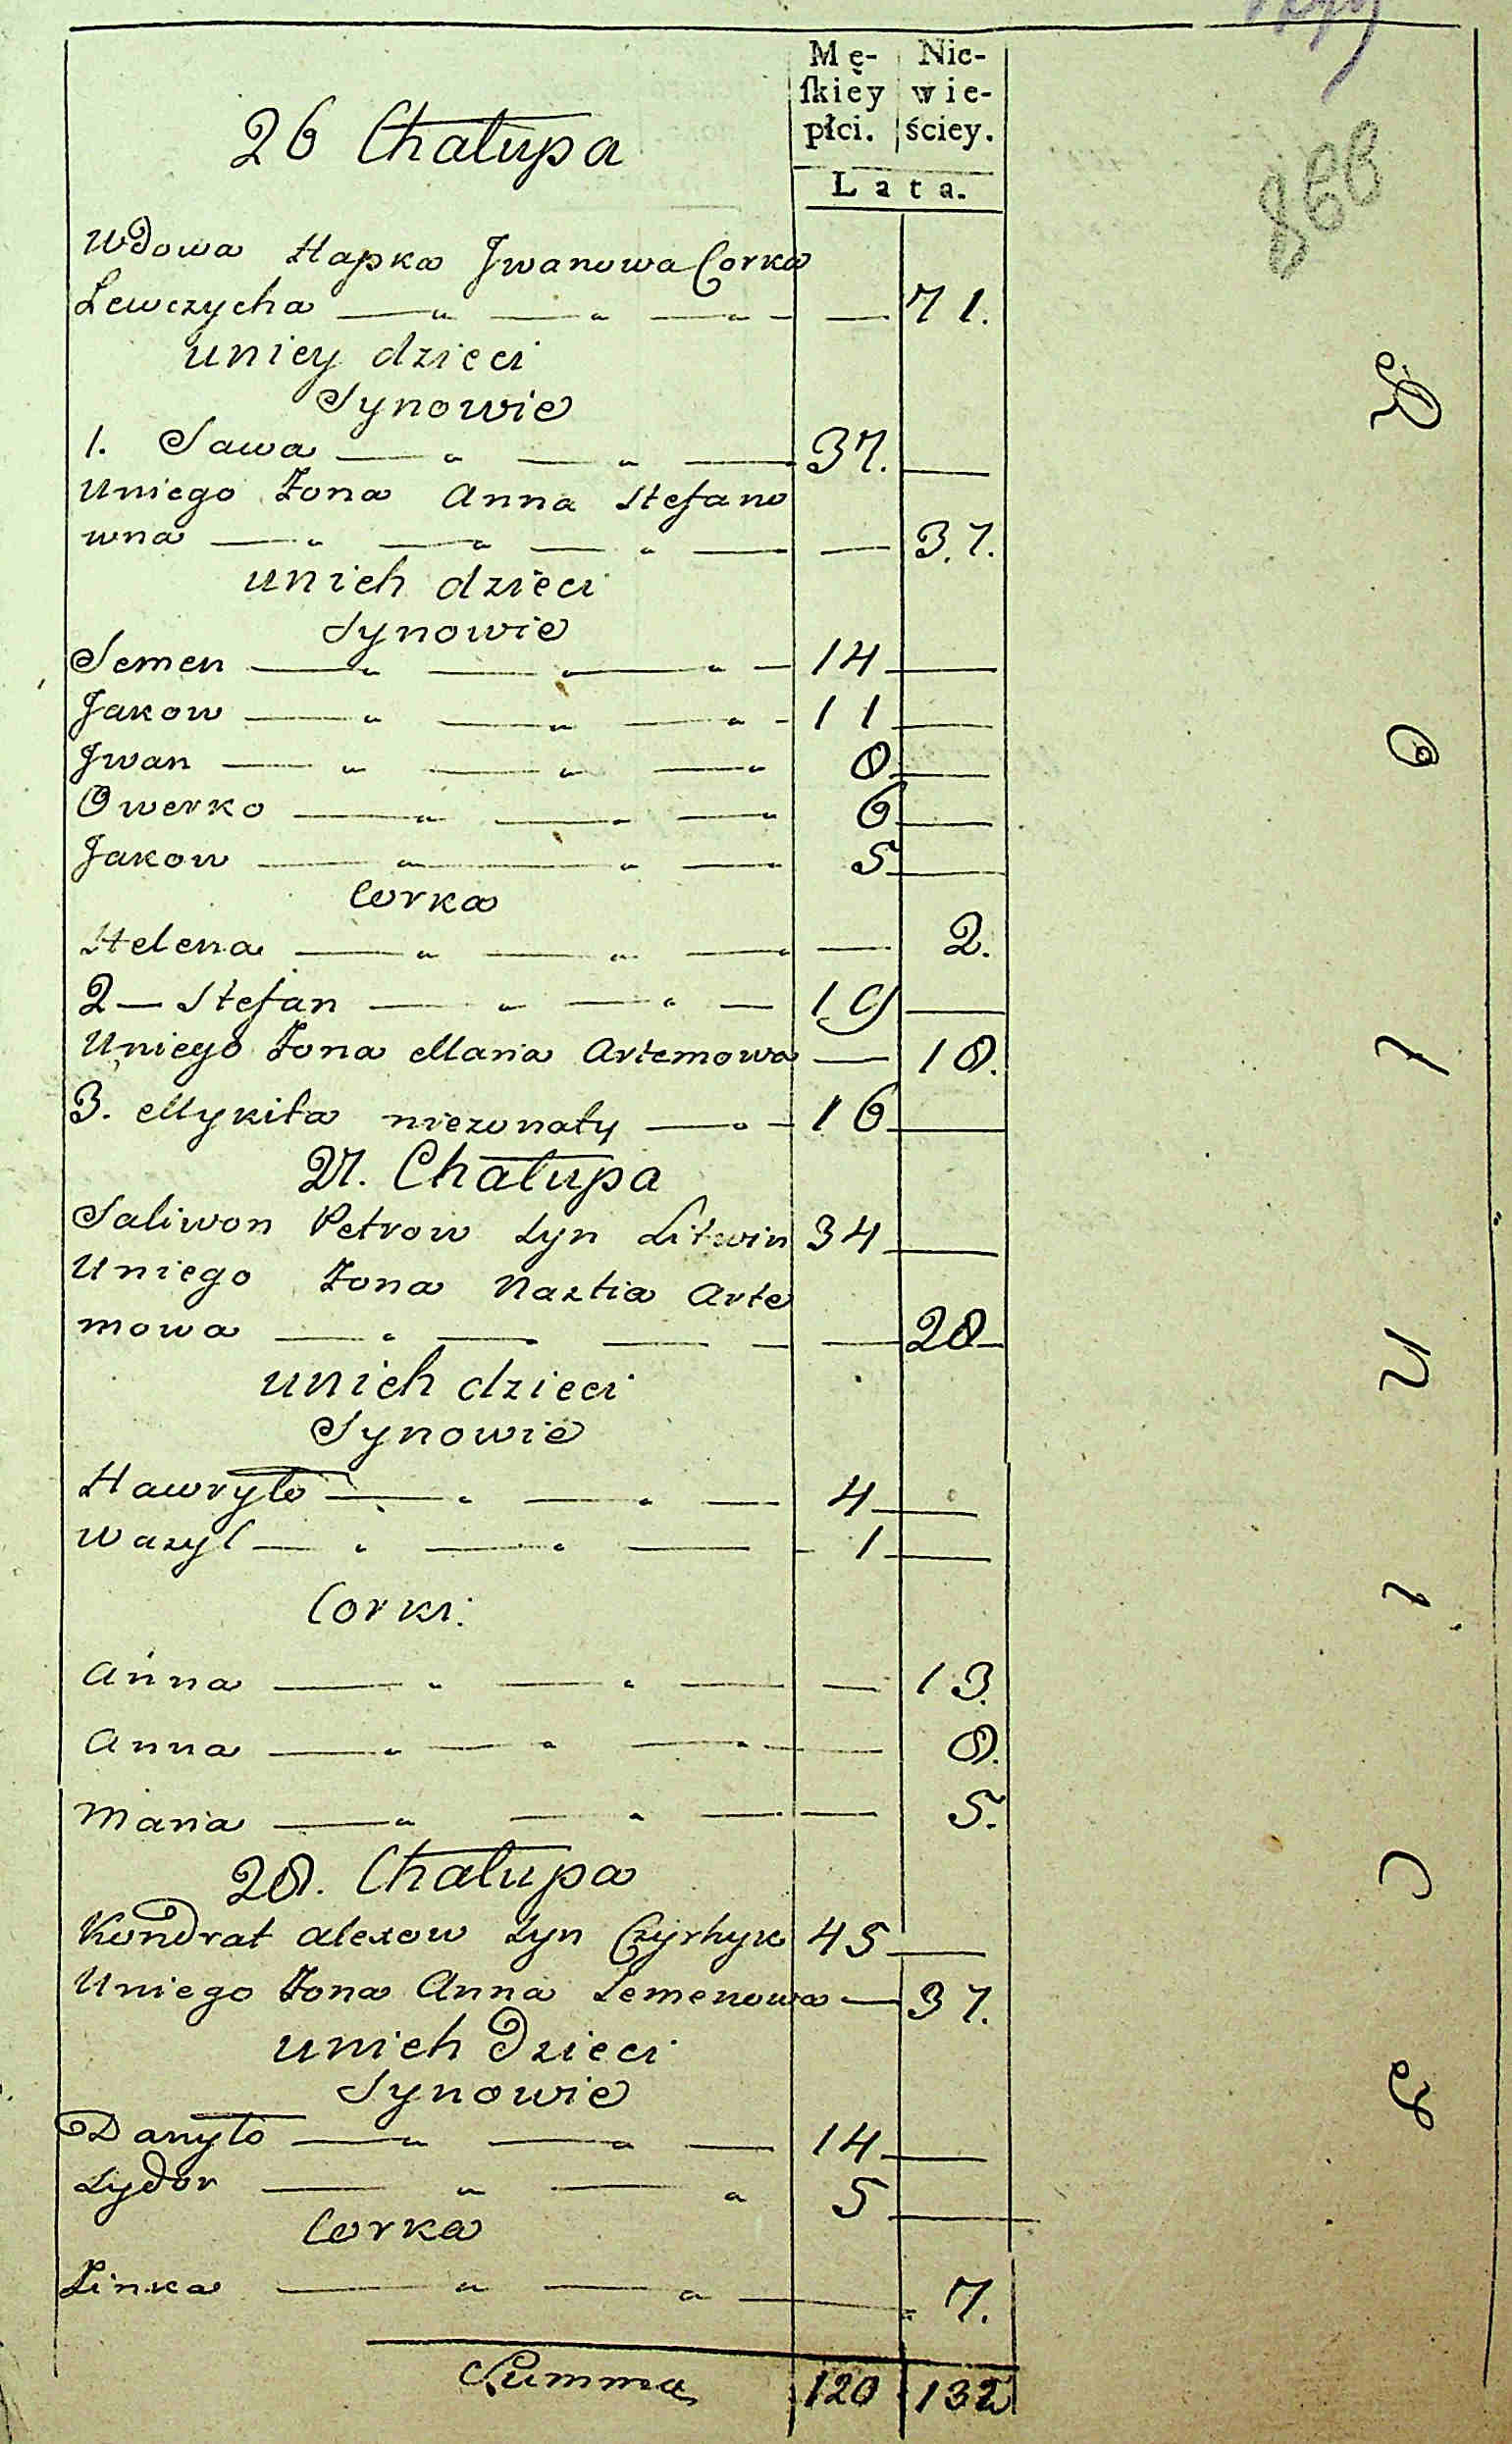 Mę- Nie-
ſkiey wie-
płci. ściey.
Lata.
26 Chałupa
Wdowa Hapka Jwanowa Corka
Lewczycha — — — — 71.
uniey dzieci
Synowie
1. Sawa — — — 37. —
Uniego Zona Anna Stefano
wna — — — — — 37.
unich dzieci
Synowie
Semen — — — — 14 —
Jakow — — — — 11 —
Jwan — — — 8 —
Owerko — — — 6 —
Jakow — — — 5 —
Corka
Helena — — — — 2.
2 — Stefan — — — 19 —
Uniego Zona Maria Artemowa — 18.
3. Mykita niezonaty — — 16 —
27. Chałupa
Saliwon Petrow Syn Litwin 34 —
Uniego Zona Nastia Arte
mowa — — — — — 28 —
unich dzieci
Synowie
Hawryło — — — 4 —
Wasyl — — — - 1 —
Corki:
Anna — — — — 13.
Anna — — — — 8.
Maria — — — — 5.
28. Chałupa
Kondrat Alexow Syn Czyrhyk 45 —
Uniego Zona Anna Semenowa — 37.
unich Dzieci
Synowie
Danyło — — — 14 —
Sydor — — 5 —
Corka
Zinka — — — 7.
Summa 120 132